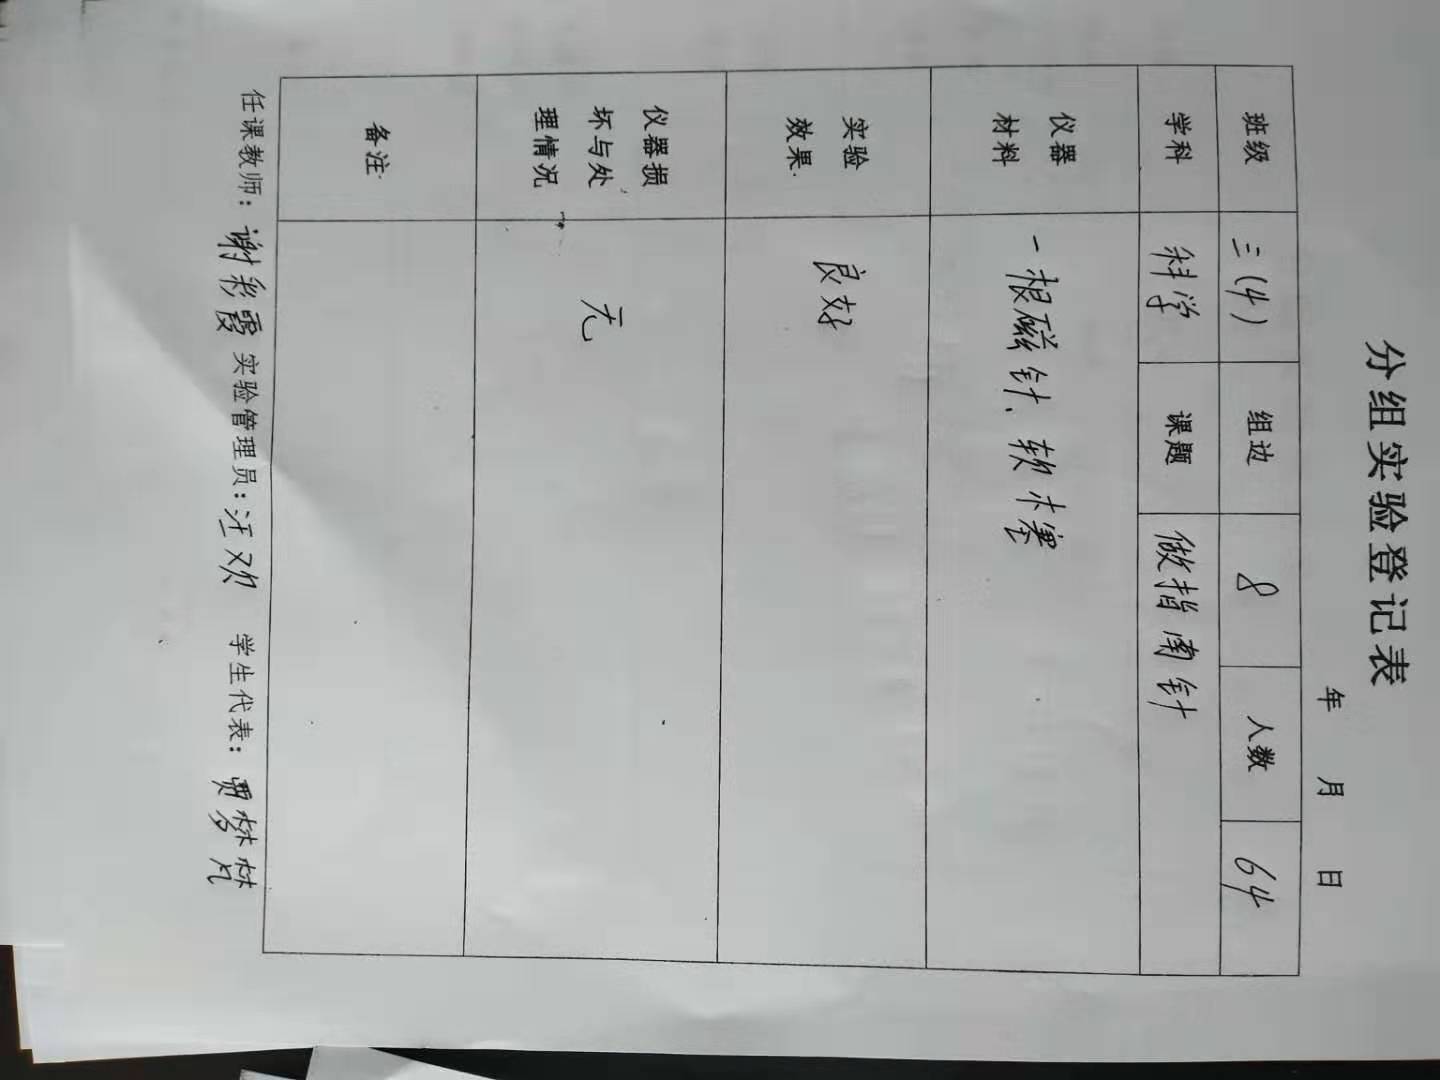 分组实验登记表
年 月 日
班级 三(4) 组边 8 人数 64
学科 科学 课题 做指南针
仪器
材料
一根磁针、软木塞
实验
效果
良好
仪器损
坏与处
理情况
无
备注
任课教师：谢彩霞 实验管理员：汪欢 学生代表：贾梦